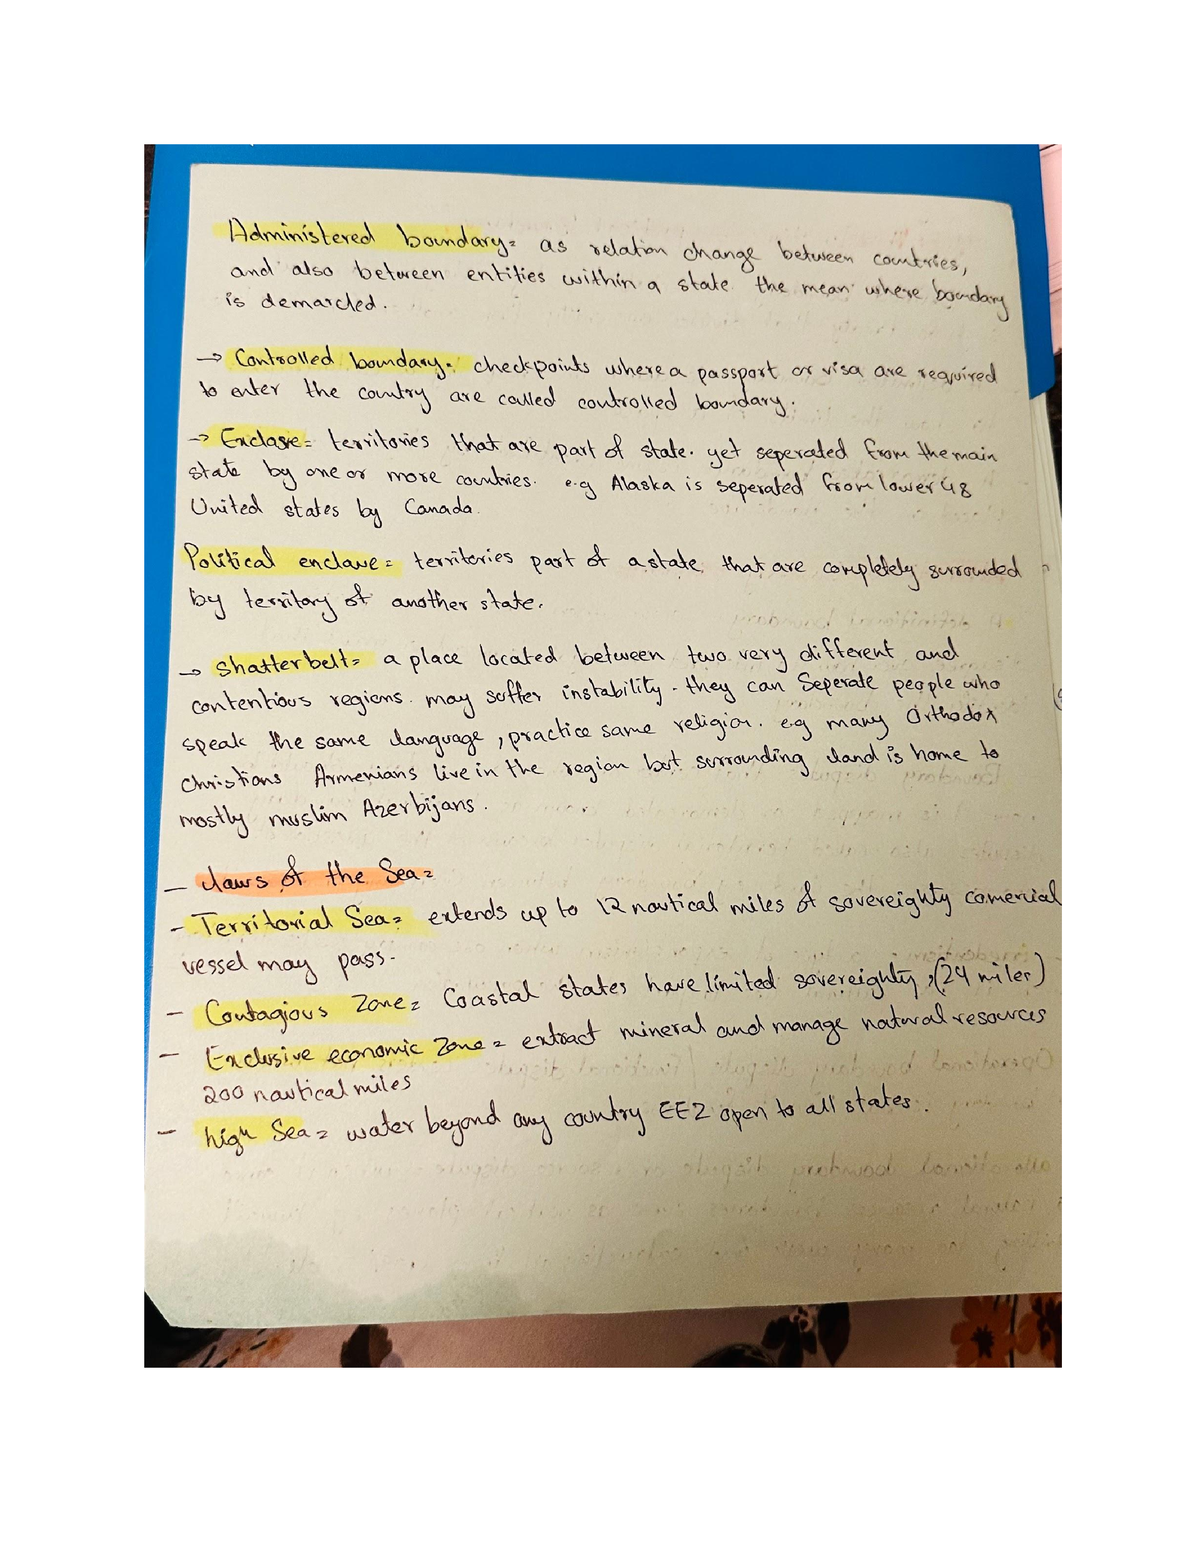 Administered boundary= as relation change between countries,
and also between entities within a state the mean where boundary
is demarcled.
→ Controlled boundary= checkpoints where a passport or visa are required
to enter the country are called controlled boundary.
→ Exclave= territories that are part of state. yet seperated from the main
state by one or more countries. e.g Alaska is seperated from lower 48
United states by Canada.
Political enclave= territories part of a state that are completely surrounded
by territory of another state.
→ Shatterbelt= a place located between two very different and
contentious regions. may suffer instability. they can Seperate people who
speak the same language, practice same religion. e.g many Orthodox
Christians Armenians live in the region but surrounding land is home to
mostly muslim Azerbijans.
– Laws of the Sea=
– Territorial Sea= extends up to 12 nautical miles of sovereighty comercial
vessel may pass.
– Contagious Zone= Coastal states have limited sovereighty, (24 miles)
– Exclusive economic Zone= extract mineral and manage natural resources
200 nautical miles
– high Sea= water beyond any country EEZ open to all states.